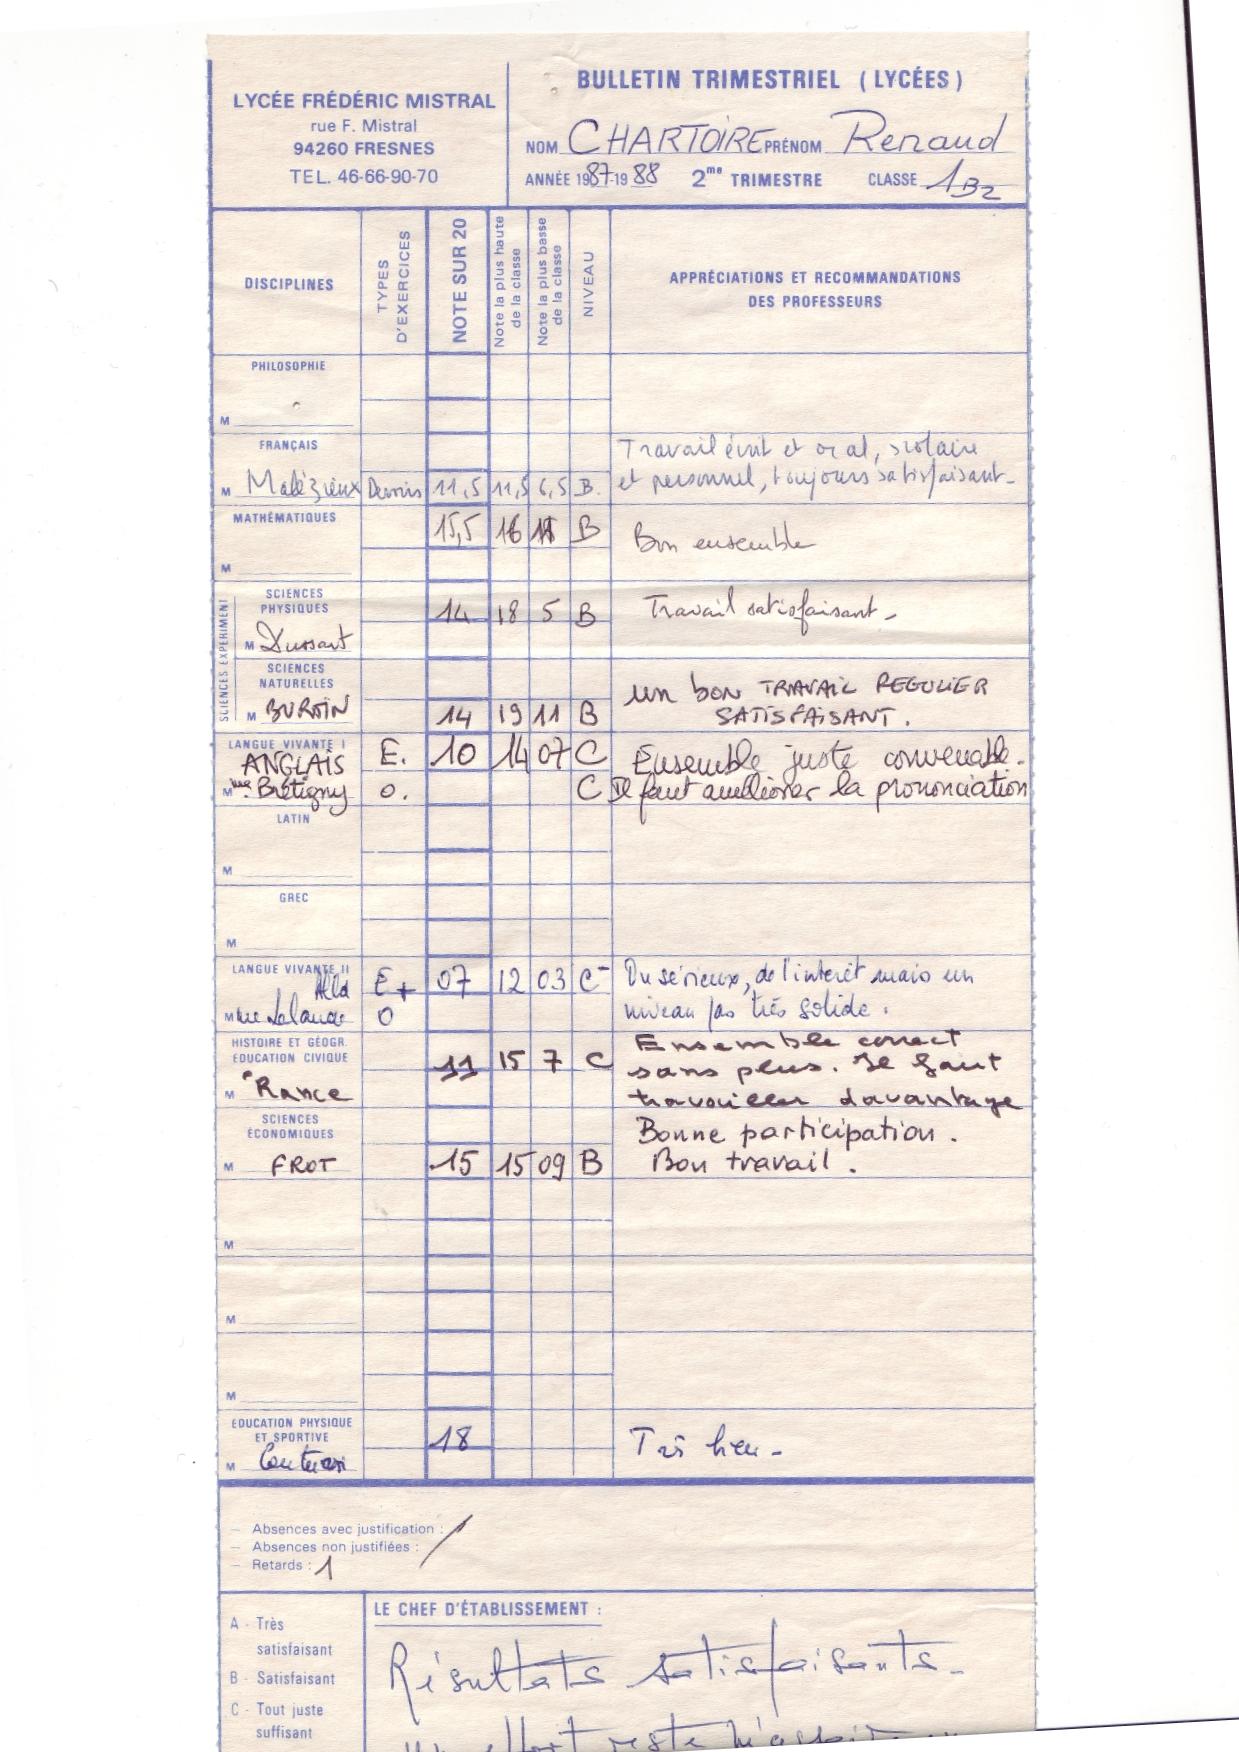 LYCÉE FRÉDÉRIC MISTRAL
rue F. Mistral
94260 FRESNES
TEL. 46-66-90-70
BULLETIN TRIMESTRIEL ( LYCÉES )
NOM CHARTOIRE PRÉNOM Renaud
ANNÉE 1987-1988 2me TRIMESTRE CLASSE 1B2
DISCIPLINES
TYPES D'EXERCICES
NOTE SUR 20
Note la plus haute de la classe
Note la plus basse de la classe
NIVEAU
APPRÉCIATIONS ET RECOMMANDATIONS
DES PROFESSEURS
PHILOSOPHIE
M
FRANÇAIS
Travail écrit et oral, scolaire
et personnel, toujours satisfaisant-
M Malézieux Devoirs 11,5 11,5 6,5 B.
MATHÉMATIQUES
15,5 16 B Bon ensemble
M
SCIENCES EXPERIMENT
SCIENCES
PHYSIQUES
14 18 5 B Travail satisfaisant -
M Dussart
SCIENCES
NATURELLES
un bon TRAVAIL REGULIER
SATISFAISANT.
M 14 19 11 B
LANGUE VIVANTE I
ANGLAIS E. 10 14 07 C Ensemble juste convenable.
M me. Brétigny O. C Il faut améliorer la prononciation
LATIN
M
GREC
M
LANGUE VIVANTE II
Alld E + 07 12 03 C- Du sérieux, de l'intérêt mais un
M me Lalande O niveau pas très solide.
HISTOIRE ET GÉOGR.
EDUCATION CIVIQUE
11 15 7 C Ensemble correct
sans plus. Il faut
travailler davantage
M Rance
SCIENCES
ÉCONOMIQUES
Bonne participation.
M FROT 15 15 09 B Bon travail.
M
M
M
EDUCATION PHYSIQUE
ET SPORTIVE
18 Très bien -
M
— Absences avec justification : /
— Absences non justifiées :
— Retards : 1
A - Très
satisfaisant
B - Satisfaisant
C - Tout juste
suffisant
LE CHEF D'ÉTABLISSEMENT :
Résultats satisfaisants -
Un effort reste